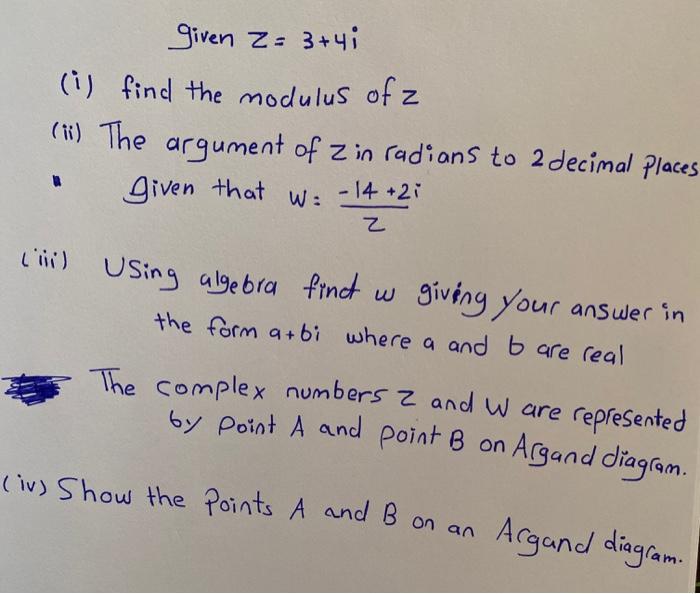 given z = 3+4i
(i) find the modulus of z
(ii) The argument of z in radians to 2 decimal places
given that w = -14 +2i
z
(iii) Using algebra find w giving your answer in
the form a+bi where a and b are real
The complex numbers z and w are represented
by point A and point B on Argand diagram.
(iv) Show the Points A and B on an Argand diagram.